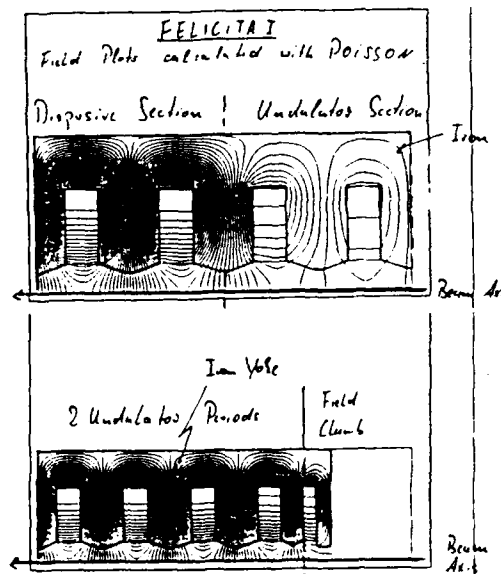 FELICITA I
Field Plots calculated with POISSON
Dispersive Section
Undulator Section
Iron
Beam Ax
Iron Yoke
2 Undulator Periods
Field
Clamb
Beam
Axis